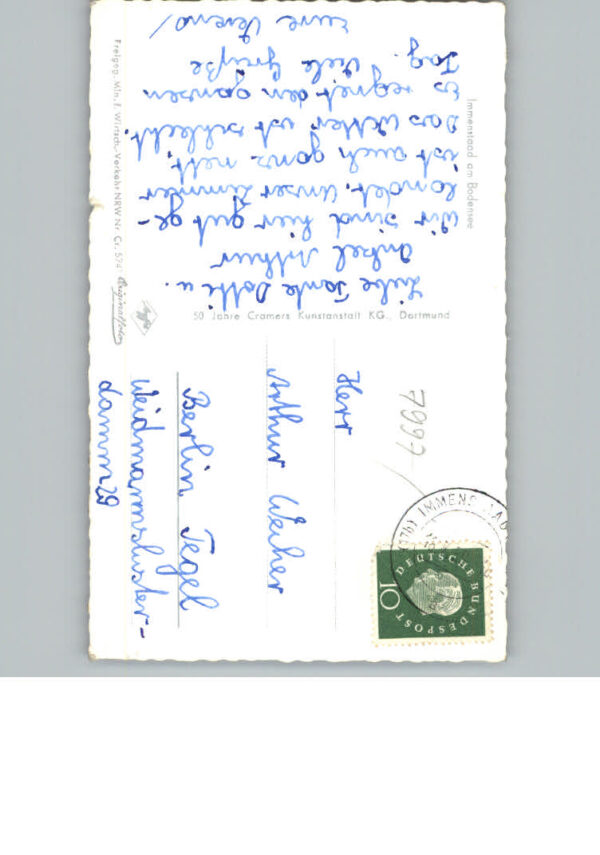 Immenstaad am Bodensee
Liebe Tante Dotti u.
Onkel Arthur
Wir sind hier gut ge-
landet. Unser Zimmer
ist auch ganz nett.
Das Wetter ist schlecht.
Es regnet den ganzen
Tag. Viele Grüße
Eure
Freigap. Min. f. Wirtsch. Verkehr NRW Nr. Cr. 574
Originalfoto
Agfa
50 Jahre Cramers Kunstanstalt KG., Dortmund
7997
Herr
Arthur Weiher
Berlin Tegel
Weidmannsluster-
damm 29
(17b) IMMENS
DEUTSCHE BUNDESPOST
10